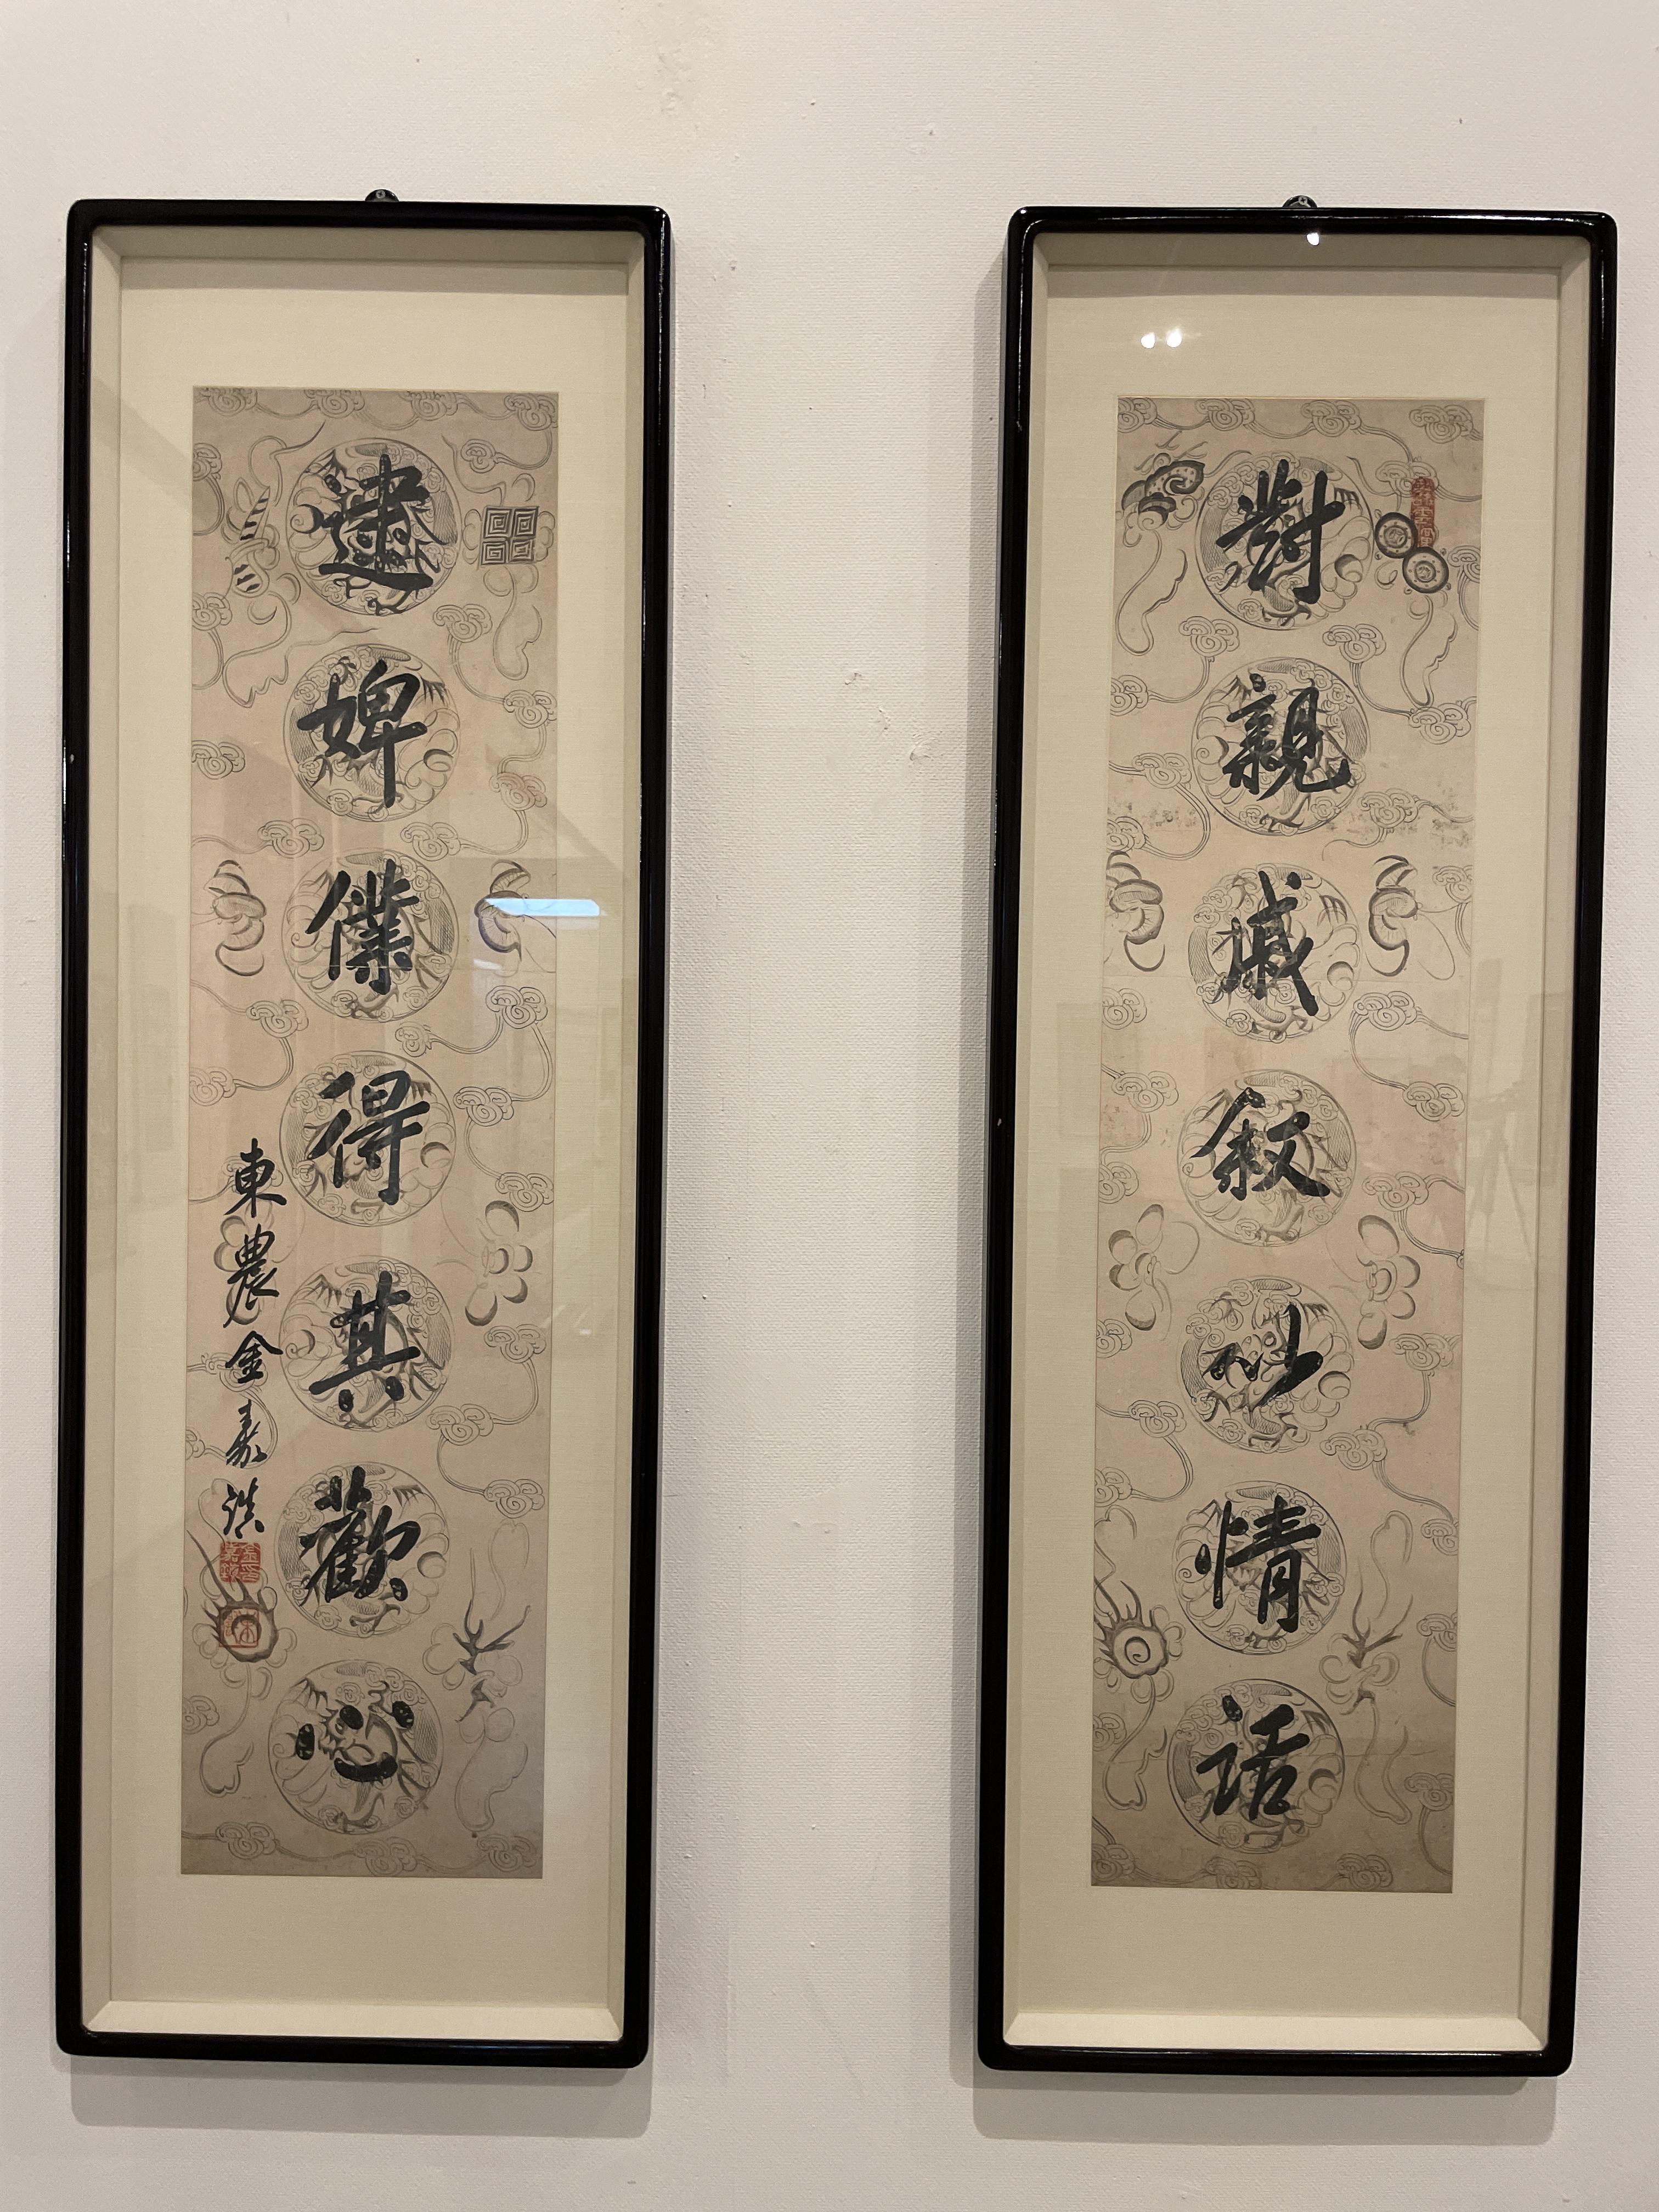 對親戚敘以情話
逮婢僕得其歡心
東農金嘉鎮